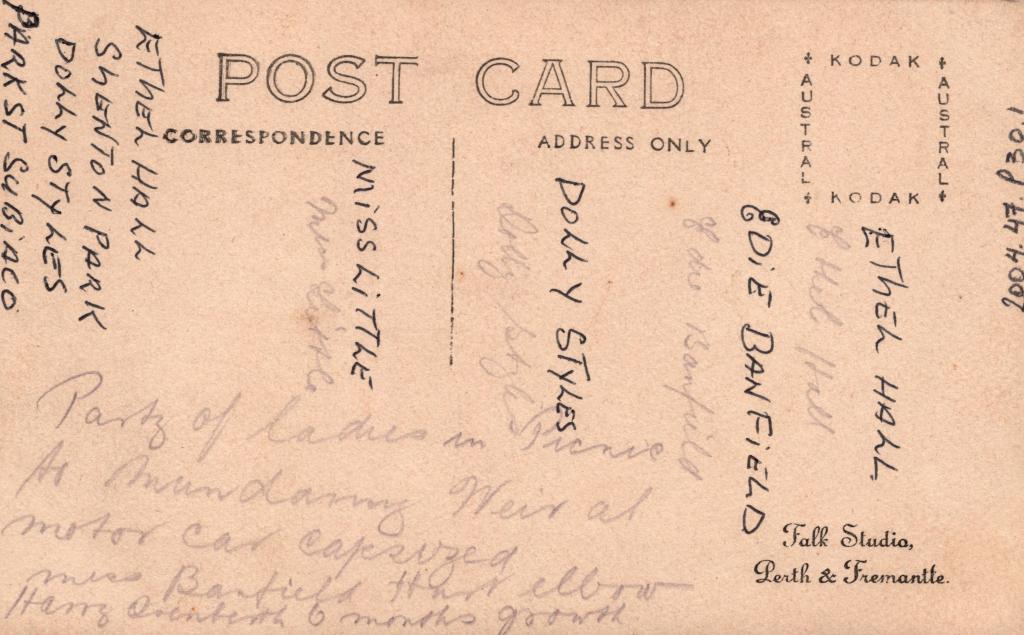 POST CARD
CORRESPONDENCE
ADDRESS ONLY
KODAK
AUSTRAL
AUSTRAL
KODAK
2004.47.P301
ETHEL HALL
Ethel Hall
EDIE BANFIELD
Edie Banfield
DOLLY STYLES
Dolly Styles
MISS LITTLE
Miss Little
ETHEL HALL
SHENTON PARK
DOLLY STYLES
PARK ST SUBIACO
Party of ladies in Picnic
to Mundaring Weir al
motor car capsized
miss Banfield Hurt elbow
Harry 6 months growth
Falk Studio,
Perth & Fremantle.